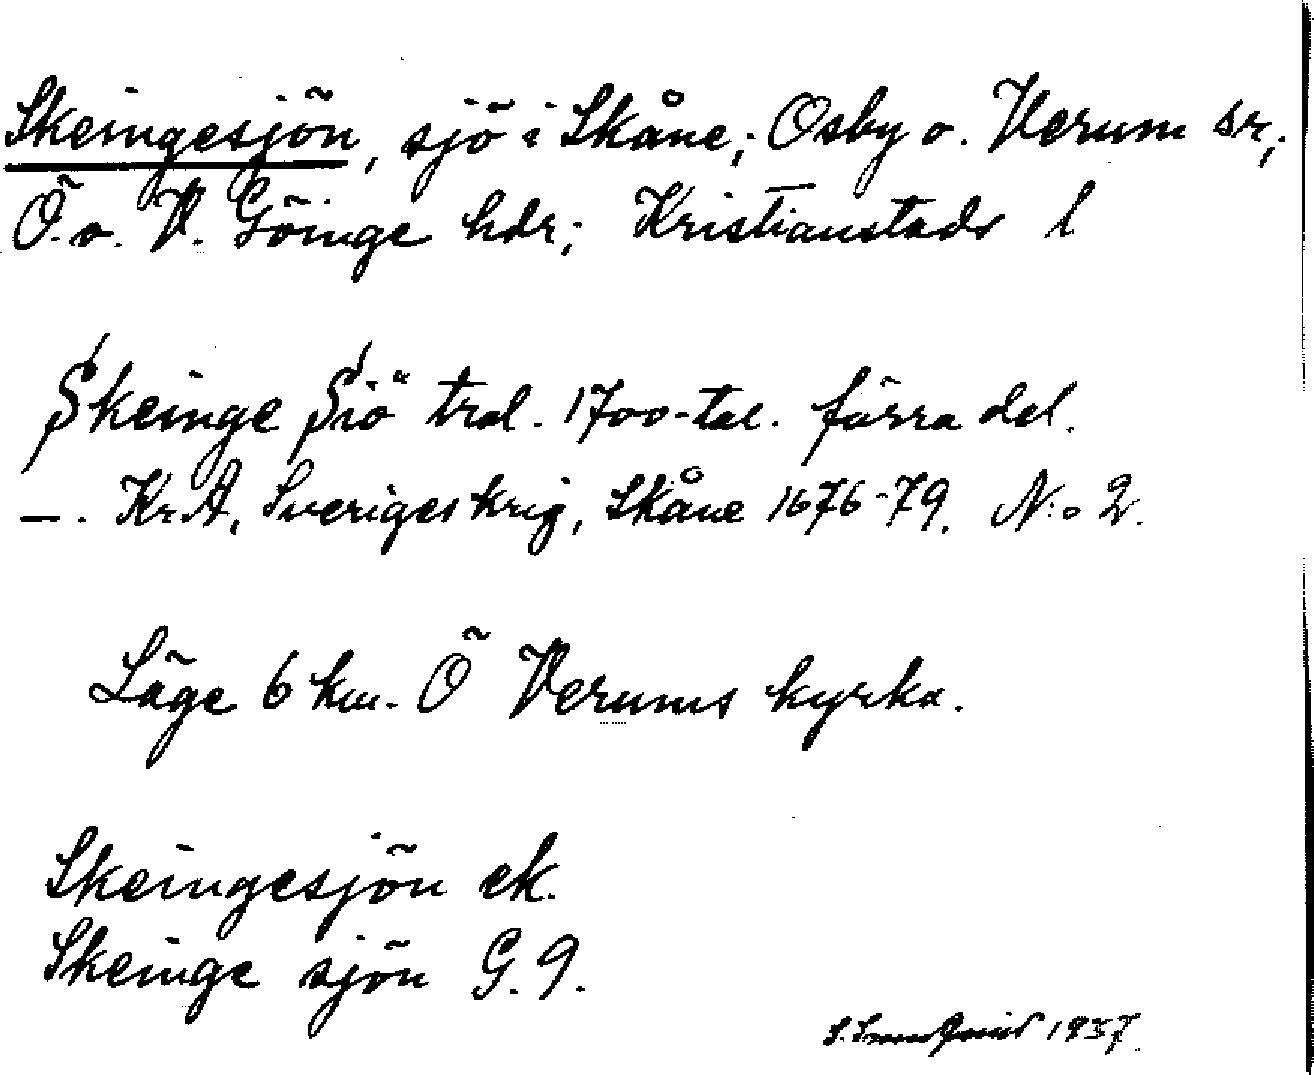 Skeingesjön, sjö i Skåne; Osby o. Verum sr;
Ö. o. V. Göinge hdr; Kristianstads l
Skeinge Siö trol. 1700-tal. förra del.
—. KrA, Sveriges krig, Skåne 1676-79. N:o 2.
Läge 6 km. Ö Verums kyrka.
Skeingesjön ek.
Skeinge sjön G. 9.
1937